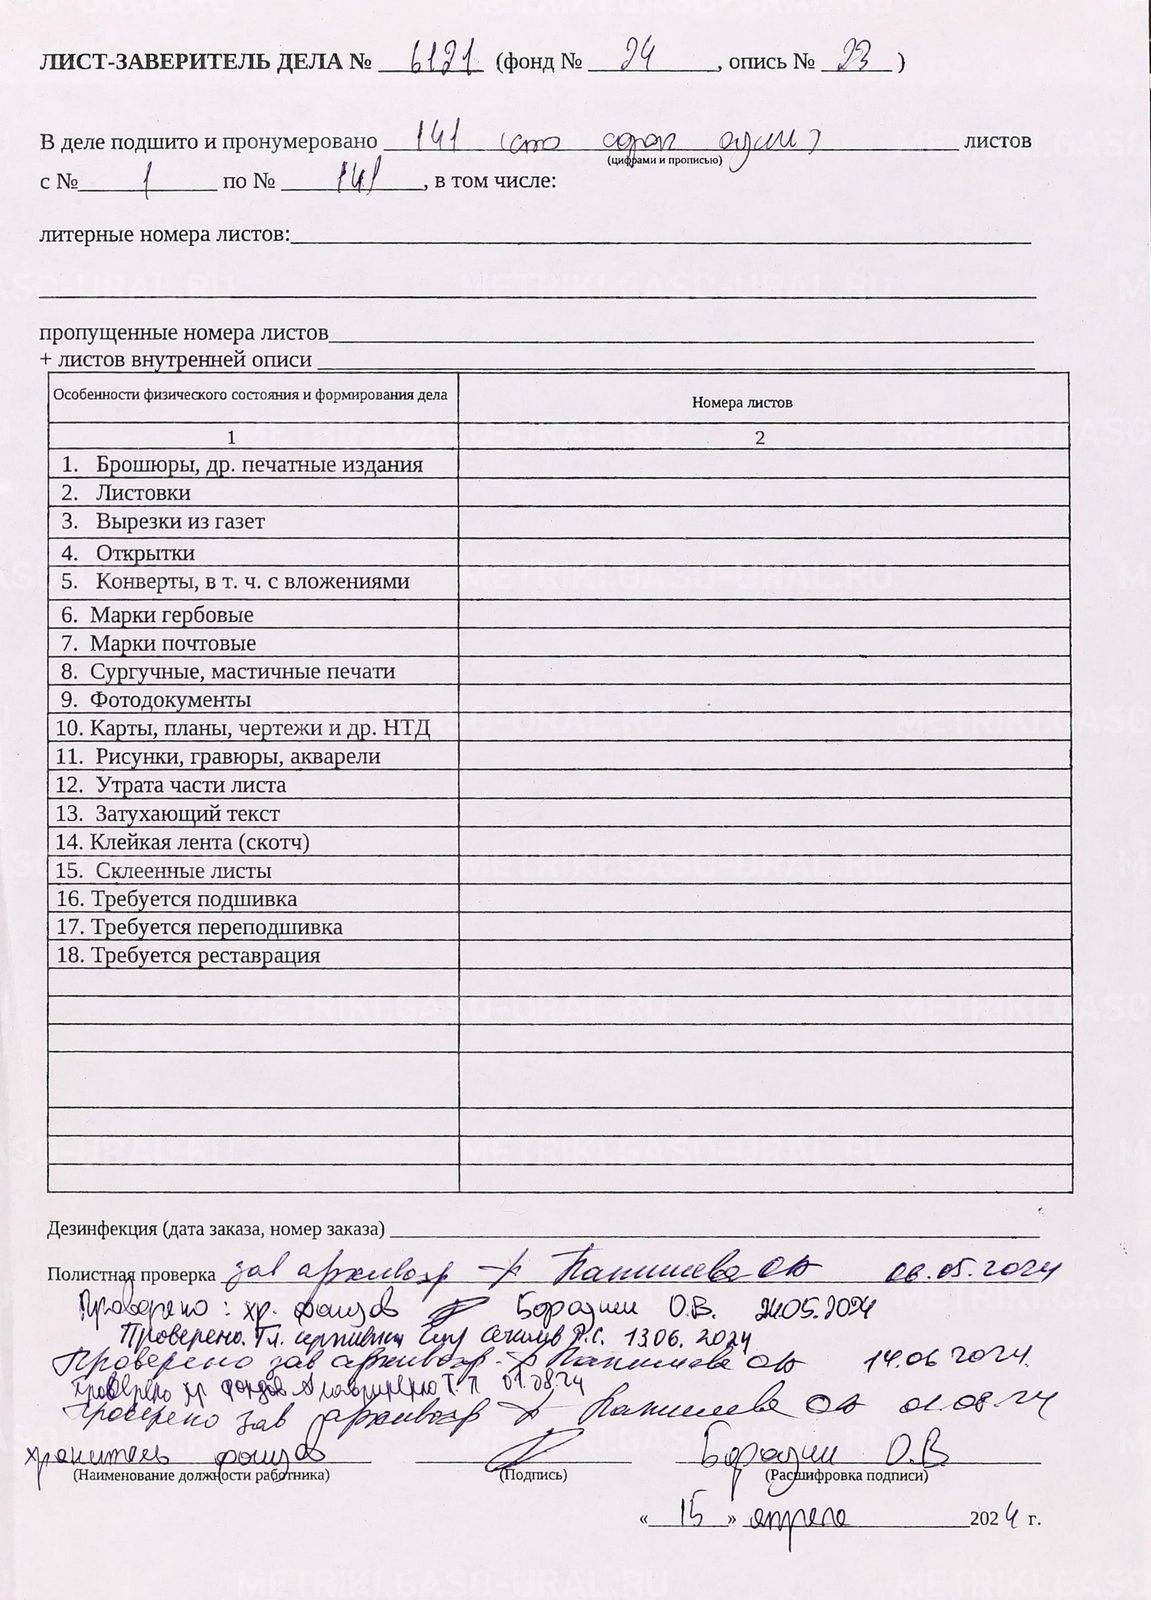 ЛИСТ-ЗАВЕРИТЕЛЬ ДЕЛА № 6121 (фонд № 24, опись № 23)
В деле подшито и пронумеровано 141 (сто сорок один) листов
(цифрами и прописью)
с № 1 по № 141, в том числе:
литерные номера листов:
пропущенные номера листов
+ листов внутренней описи
Особенности физического состояния и формирования дела Номера листов
1 2
1. Брошюры, др. печатные издания
2. Листовки
3. Вырезки из газет
4. Открытки
5. Конверты, в т. ч. с вложениями
6. Марки гербовые
7. Марки почтовые
8. Сургучные, мастичные печати
9. Фотодокументы
10. Карты, планы, чертежи и др. НТД
11. Рисунки, гравюры, акварели
12. Утрата части листа
13. Затухающий текст
14. Клейкая лента (скотч)
15. Склеенные листы
16. Требуется подшивка
17. Требуется переподшивка
18. Требуется реставрация
Дезинфекция (дата заказа, номер заказа)
Полистная проверка зав архивохр 06.05.2024
Проверено: хр. фондов О.В. 24.05.2024
Проверено. Гл. архивист Р.С. 13.06.2024
Проверено зав архивохр. 14.06.2024.
Проверено хр фондов Т.П. 01.08.24
Проверено зав архивохр 01.08.24
хранитель фондов О.В
(Наименование должности работника) (Подпись) (Расшифровка подписи)
«15» апреля 2024 г.
METRIKI.GASO-URAL.RU